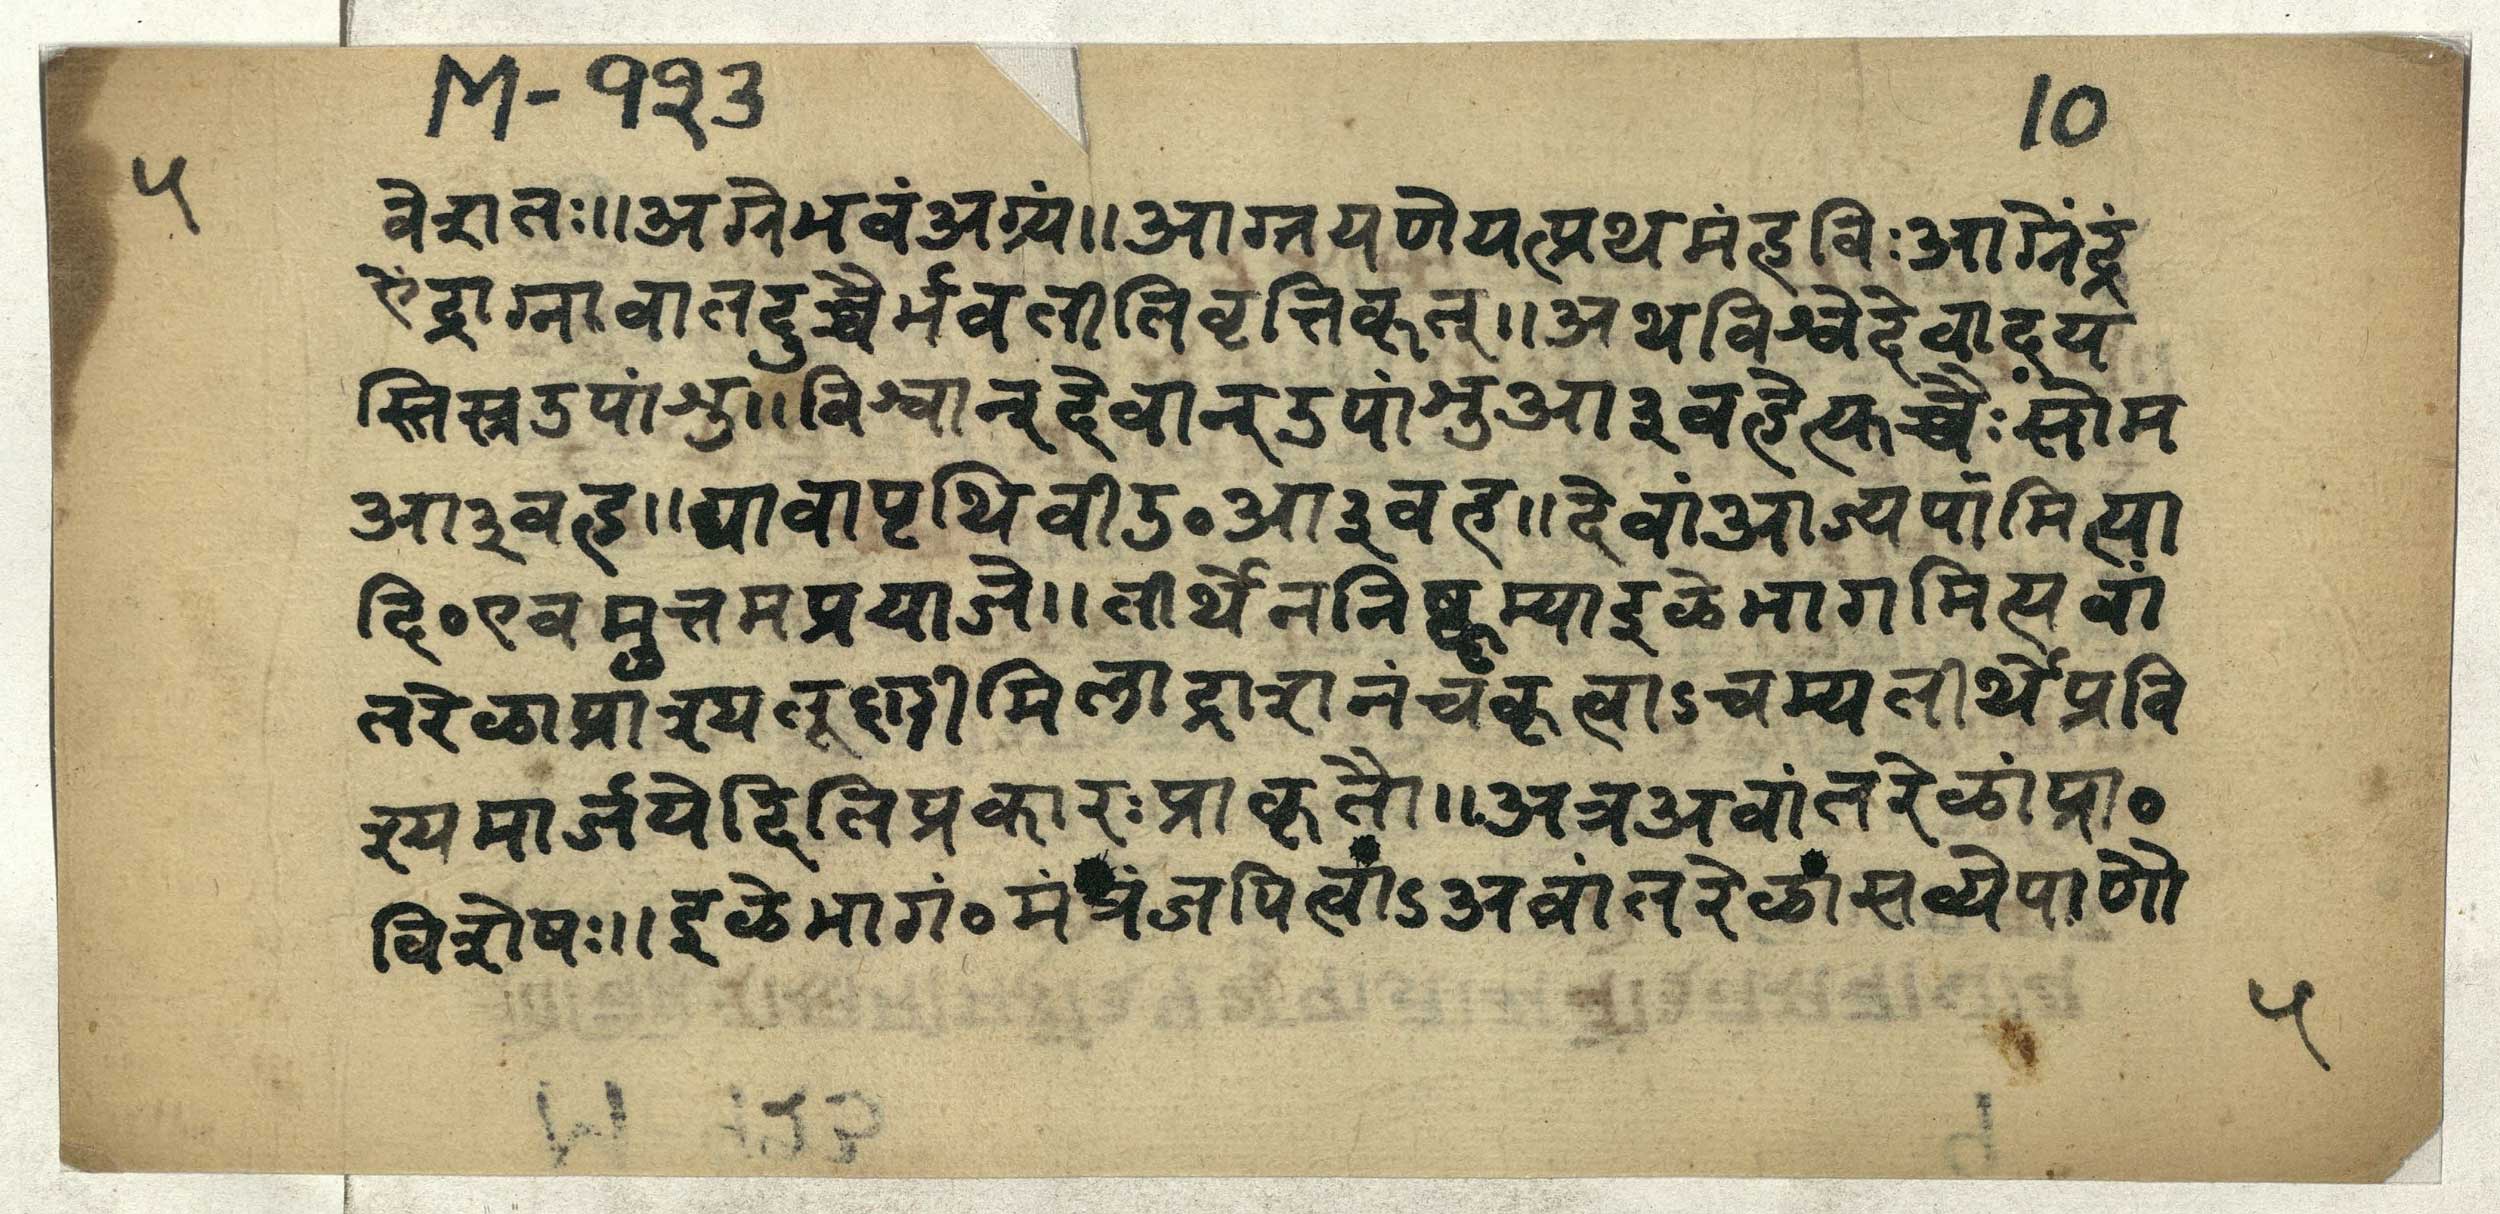 M-१२३
10
५
वेशतः॥अग्नेभवंअग्र्यं॥आग्नयणेयत्प्रथमंहविःआग्नेंद्रं
ऐंद्राग्नावातदुच्चैर्भवतीतिवृत्तिकृत्॥अथविश्वेदेवादय
स्तिस्रउपांशु॥विश्वान्देवान्उपांशुआ३वहेत्कच्चैःसोम
आ३वह॥द्यावापृथिवीउ॰आ३वह॥देवांआज्यपांमित्या
दि॰एवमुत्तमप्रयाजे॥तीर्थेननिष्क्रम्याइळेभागमित्यवां
तरेळाप्राश्यतूष्णीमिलाद्राशनंचकृत्वाऽचम्यतीर्थेप्रवि
श्यमार्जयेदितिप्रकारःप्राकृतौ॥अत्रअवांतरेळांप्रा॰
विशेषः॥इळेभागं॰मंत्रंजपित्वाऽअवांतरेळांसव्येपाणौ
५